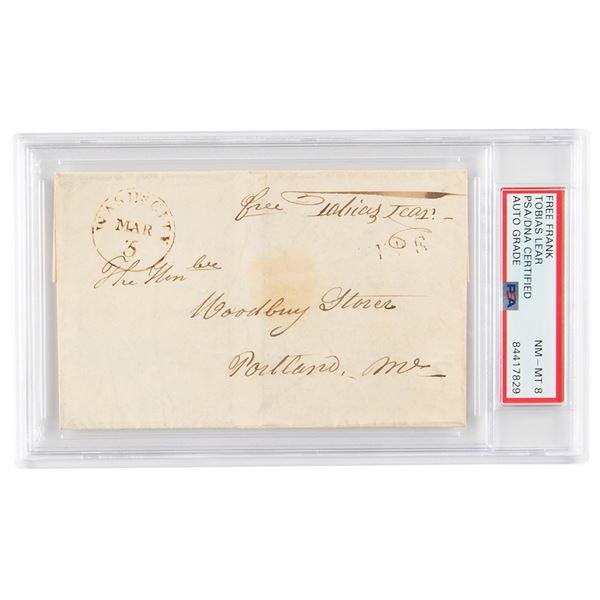 WASHN CITY
MAR
5
free Tobias Lear
The Honble
Woodbury Storer
Portland, Me
FREE FRANK
TOBIAS LEAR
PSA/DNA CERTIFIED
AUTO GRADE
PSA
NM - MT 8
84417829